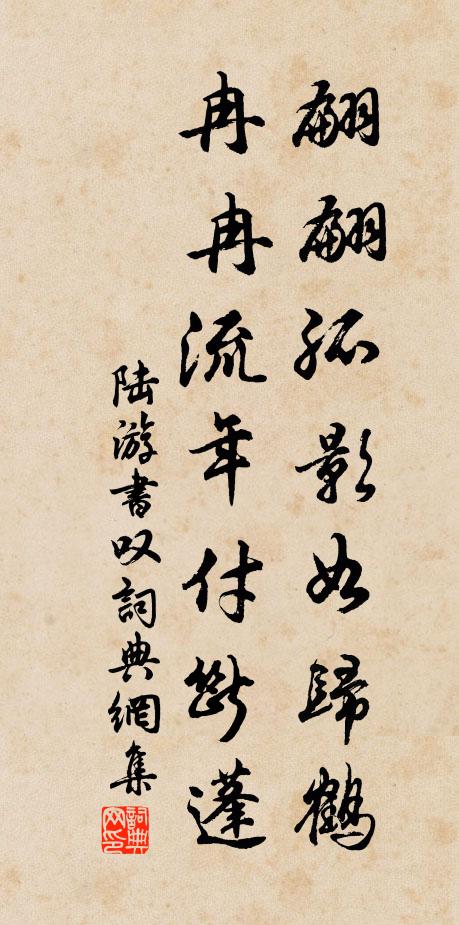 翩翩孤影如歸鶴
冉冉流年付斷蓬
陆游書叹詞典網集
詞典
网印